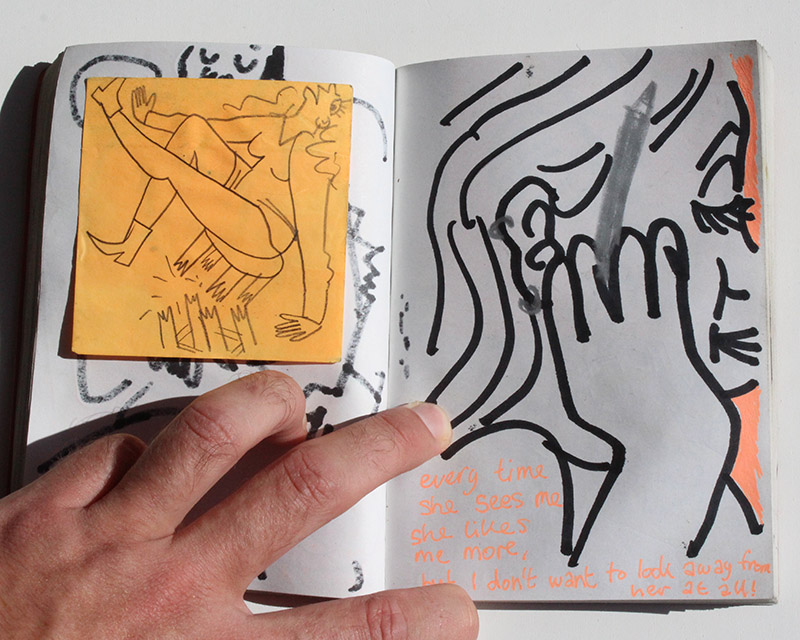 every time
she sees me
she likes
me more,
but I don't want to look away from
her at all!